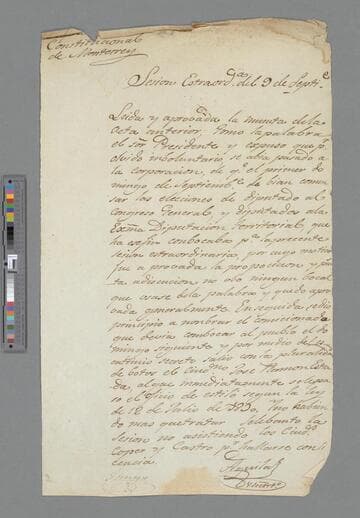 Constitucional
de Monterrey
Sesion Extraord.a del 9 de Septi.e
Leida y aprovada la minuta de la
acta anterior, tomo la palabra
el sor Presidente y expuso que p.r
olvido inboluntario se abia pasado á
la corporacion, de q.e el primer do
mingo de Septiemb.e debian comen
sar las elecciones de diputado al
Congreso General, y diputados ala
Exma Diputacion Territorial, que
ha este fin conbocaba p.a la presente
sesion estraordinaria, por cuyo motivo
fue aprovada la proposicion y
discucion no ubo ningun Vocal
que usase dela palabra y quedo apro
vada generalmente. En seguida se dio
prinsipio a nombrar el comicionado
que devia conbocar al pueblo el do
mingo siguiente y por medio de es
crutinio secreto salio con la pluralidad
de botos el Ciud.no José Ramon Estra
da, al que inmediatamente se le pa
so el oficio de estilo segun la ley
de 12 de Julio de 1830. Y no habien
do mas que tratar se lebanto la
Sesion no asistiendo los Ciud.s
Coper y Castro p.r hallarse con li
cencia.